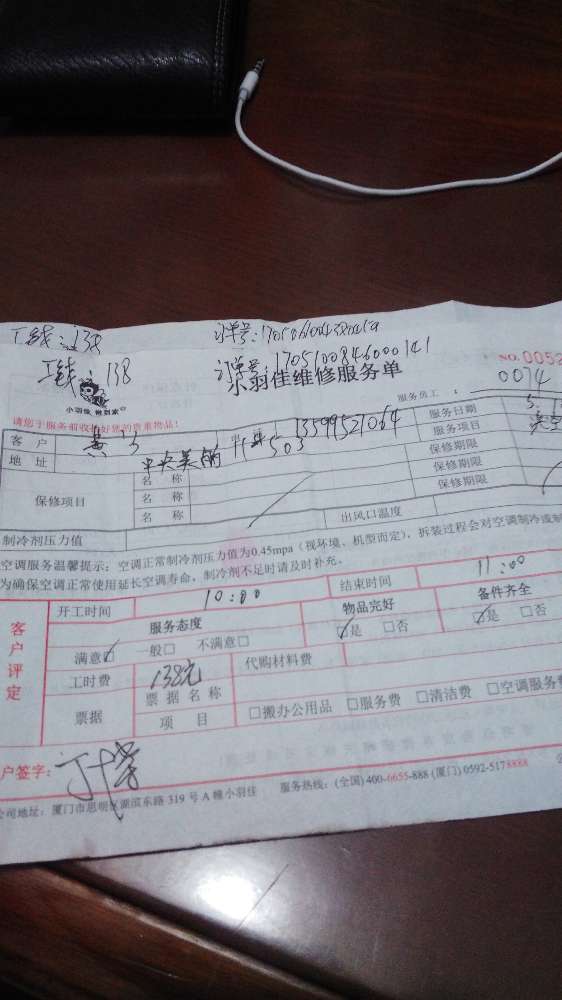 工钱：138
工钱：138 订单号：1705100846000141
小羽佳维修服务单 NO.0052
小羽佳 做到家
服务员工： 0074
请您于服务前收拾好您的贵重物品！
客 户 电 话 13599527064 服务日期 5
地 址 中央美 503 服务项目
保修项目 名 称 保修期限
名 称 保修期限
名 称 保修期限
制冷剂压力值 出风口温度
空调服务温馨提示：空调正常制冷剂压力值为0.45mpa（视环境、机型而定），拆装过程会对空调制冷或制
为确保空调正常使用延长空调寿命，制冷剂不足时请及时补充。
客户评定
开工时间 10：00 结束时间 11：00
服务态度 物品完好 备件齐全
满意☑ 一般□ 不满意□ ☑是 □否 ☑是 □否
工时费 138元 代购材料费
票据 票据名称 □搬办公用品 □服务费 □清洁费 □空调服务费
项 目
户签字：
公司地址：厦门市思明区湖滨东路 319 号 A 幢小羽佳 服务热线：(全国) 400-6655-888 (厦门) 0592-5178888